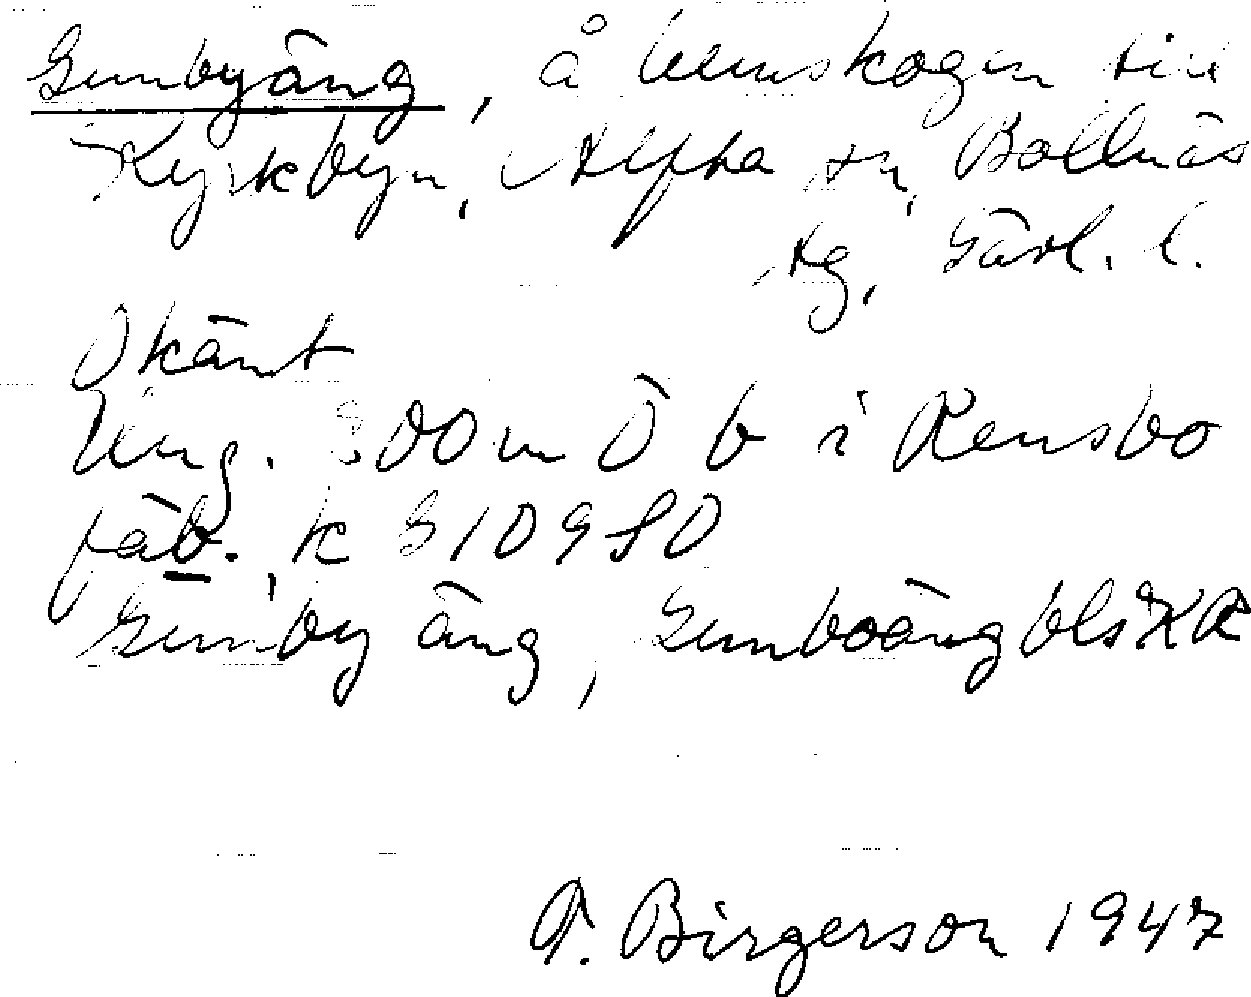 Gunbyäng, å hemskogen till
Kyrkbyn, Alfta sn, Bollnäs
tg, Gävl. l.
Okänt
Ung. 300 m Ö b i Rensbo
fäb. k 310980
Gunbyäng, Gunboäng blsKR
T. Birgerson 1947